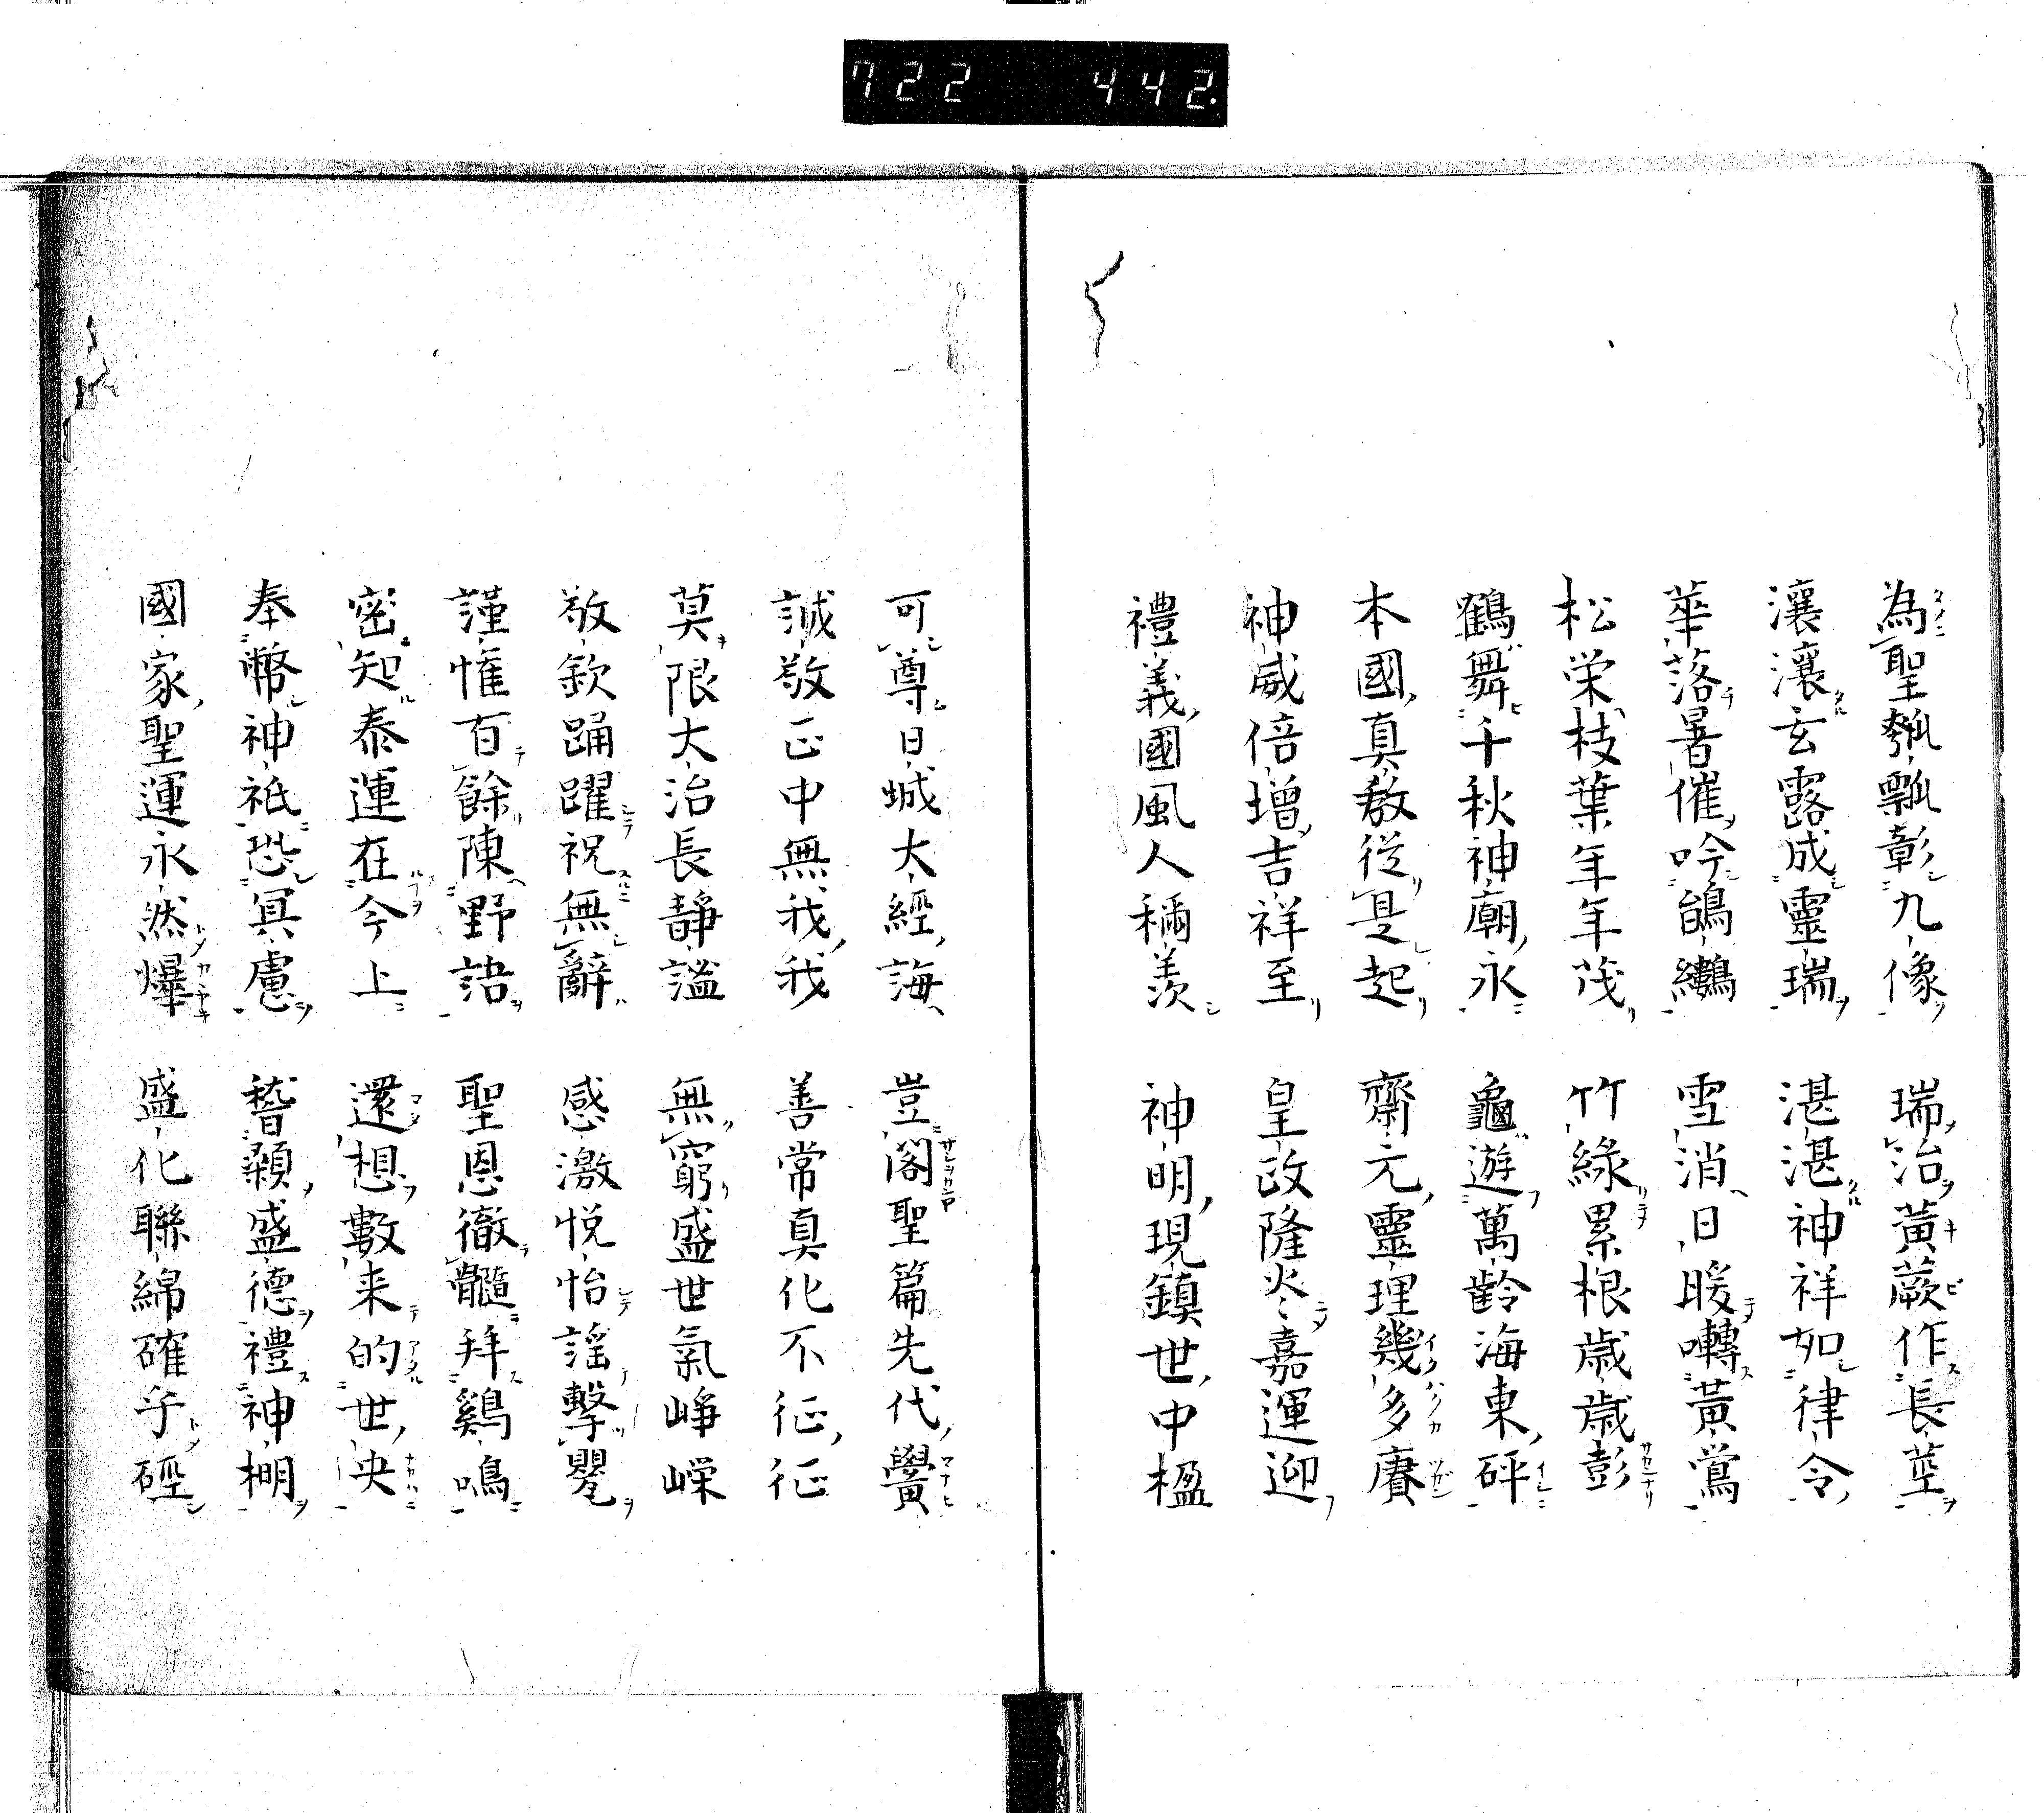 722 442.
為聖瓠瓢彰九像 瑞治黃蕨作長莖
瀼瀼玄露成靈瑞 湛湛神祥如律令
華落暑催吟鴿 雪消日暖囀黃鶯
松栄枝葉年年茂 竹緑累根歳歳彭
鶴舞千秋神廟永 龜遊萬齡海東砰
本國真教從是起 齋元靈理幾多賡
神威倍增吉祥至 皇政隆㷡嘉運迎
禮義國風人稱羨 神明現鎮世中楹
可尊日域大經誨 豈閣聖篇先代黌
誠敬正中無我我 善常真化不征征
莫限大治長靜謐 無窮盛世氣崢嶸
敬欽踊躍祝無辭 感激悦怡謡擊
謹惟百餘陳野語 聖恩徹髓拜鷄鳴
密知泰運在今上 還想數来的世央
奉幣神祇恐冥慮 稽顙盛德禮神棚
國家聖運永然爆 盛化聯綿確乎硜